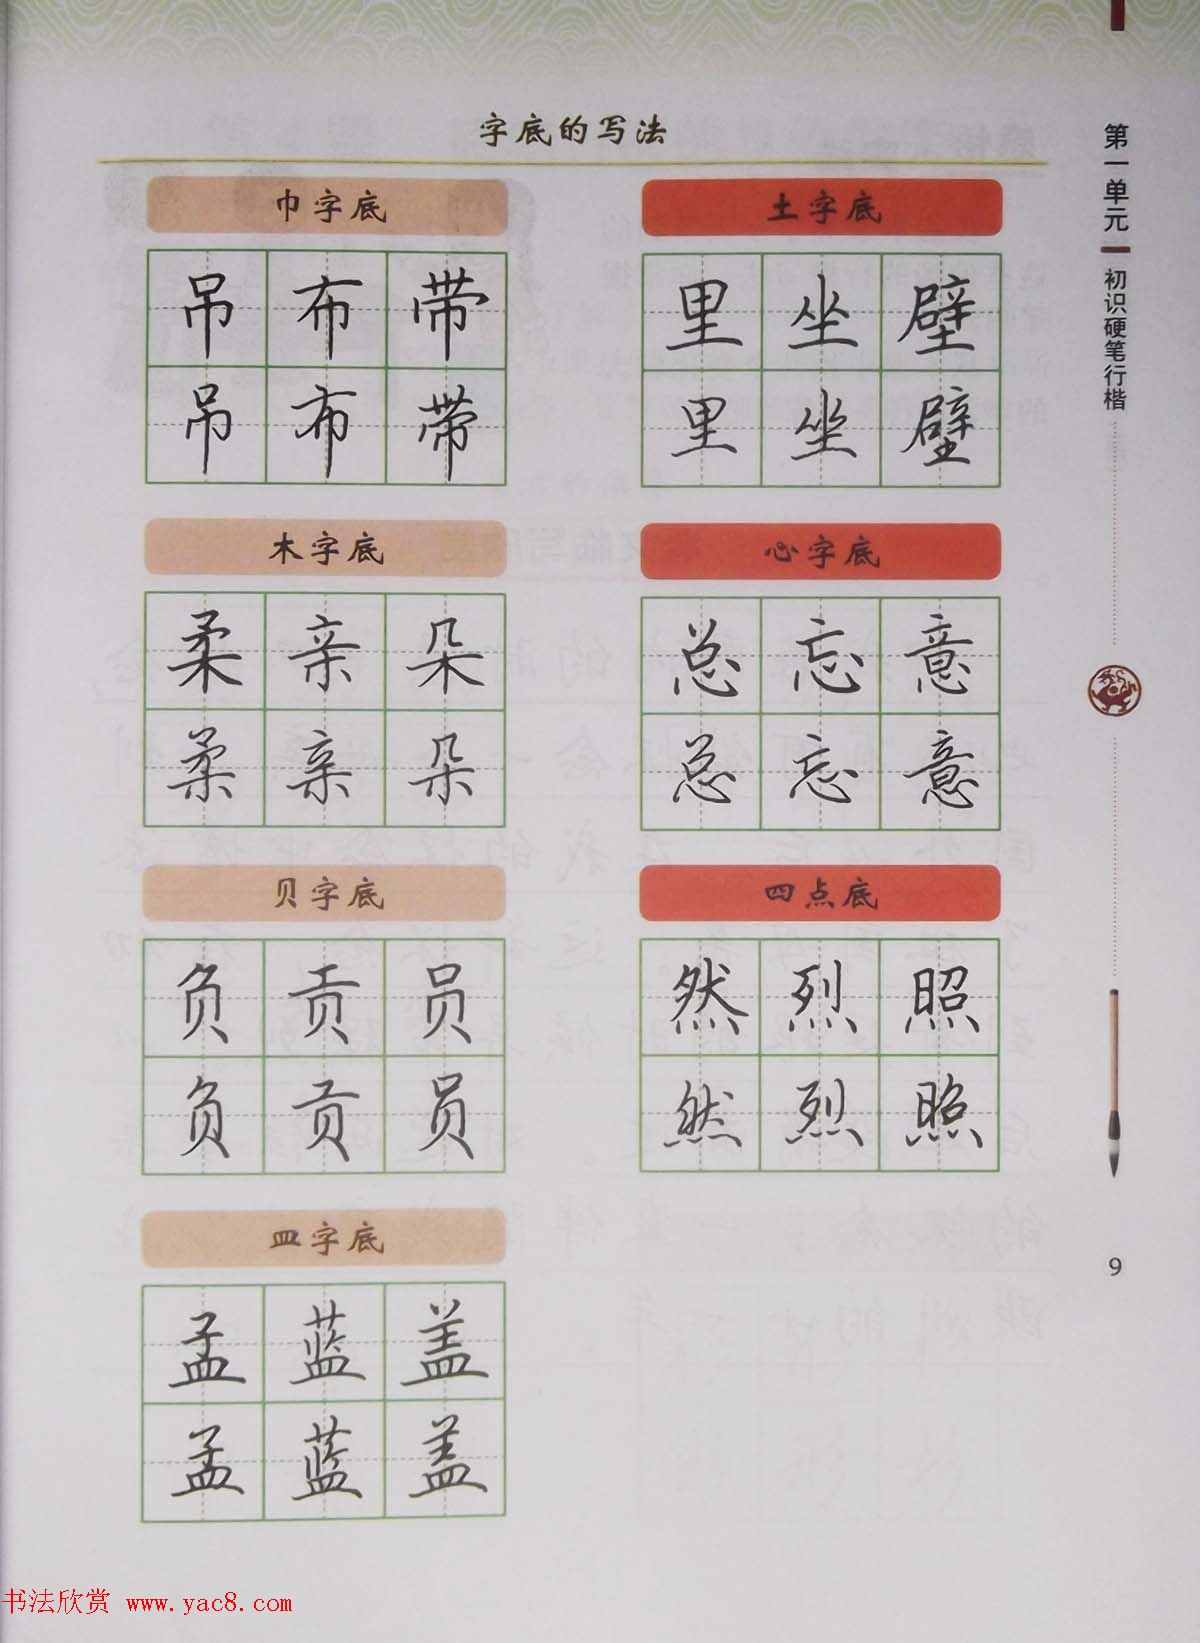 字底的写法
巾字底
吊布带
吊布带
土字底
里坐壁
里坐壁
木字底
柔亲朵
柔亲朵
心字底
总忘意
总忘意
贝字底
负贡员
负贡员
四点底
然烈照
然烈照
皿字底
孟蓝盖
孟蓝盖
第一单元
初识硬笔行楷
9
书法欣赏 www.yac8.com